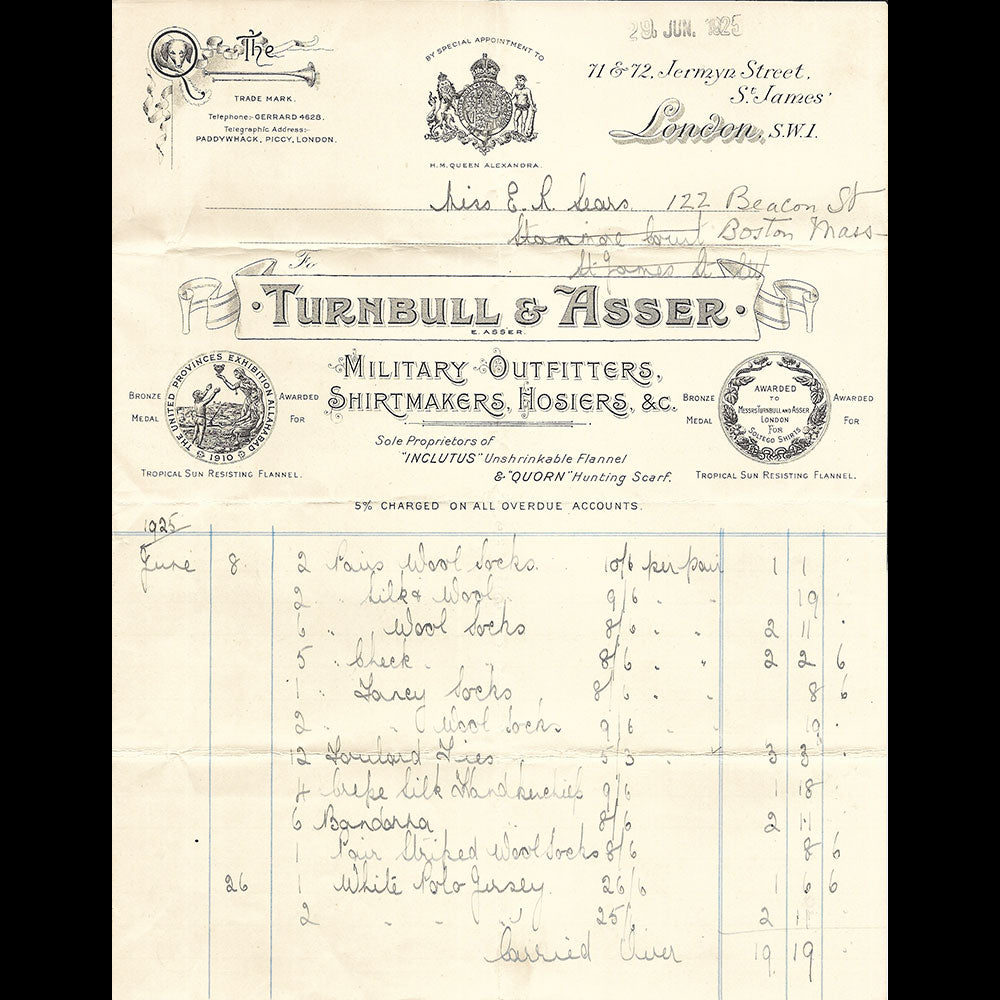 The
TRADE MARK.
Telephone:- GERRARD 4628.
Telegraphic Address:-
PADDYWHACK, PICCY, LONDON.
BY SPECIAL APPOINTMENT TO
H.M. QUEEN ALEXANDRA.
29 JUN. 1925
71 & 72, Jermyn Street,
St. James'
London, S.W.1.
Miss E. R. Sears. 122 Beacon St
Court Boston Mass
St James St
To
TURNBULL & ASSER
E. ASSER.
MILITARY OUTFITTERS,
SHIRTMAKERS, HOSIERS, &c.
Sole Proprietors of
"INCLUTUS" Unshrinkable Flannel
& "QUORN" Hunting Scarf.
BRONZE MEDAL
THE UNITED PROVINCES EXHIBITION ALLAHABAD 1910
AWARDED FOR
TROPICAL SUN RESISTING FLANNEL.
BRONZE MEDAL
AWARDED
TO
MESSRS TURNBULL AND ASSER
LONDON
FOR
SOLTEGO SHIRTS
AWARDED FOR
TROPICAL SUN RESISTING FLANNEL.
5% CHARGED ON ALL OVERDUE ACCOUNTS.
1925
June 8 2 Pairs Wool Socks. 10/6 per pair 1 1 .
2 " Silk & Wool 9/6 " " 19 .
6 " Wool Socks 8/6 " " 2 11 .
5 " Check " 8/6 " " 2 2 6
1 " Fancy Socks 8/6 " " 8 6
2 " " Wool Socks 9/6 19 .
12 Foulard Ties 5/3 3 3 .
4 Crepe Silk Handkerchiefs 9/6 1 18
6 Bandanna 8/6 2 11
1 Pair Striped Wool Socks 8/6 8 6
26 1 White Polo Jersey. 26/6 1 6 6
2 " " " 25/6 2 11 .
Carried Over 19 19 .